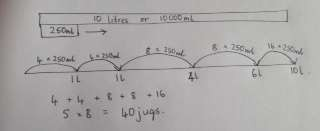 10 litres or 10000ml
250ml
4 x 250ml 4 x 250ml 8 x 250ml 8 x 250ml 16 x 250ml
1L 1L 4L 6L 10L
4 + 4 + 8 + 8 + 16
5 x 8 = 40 jugs.